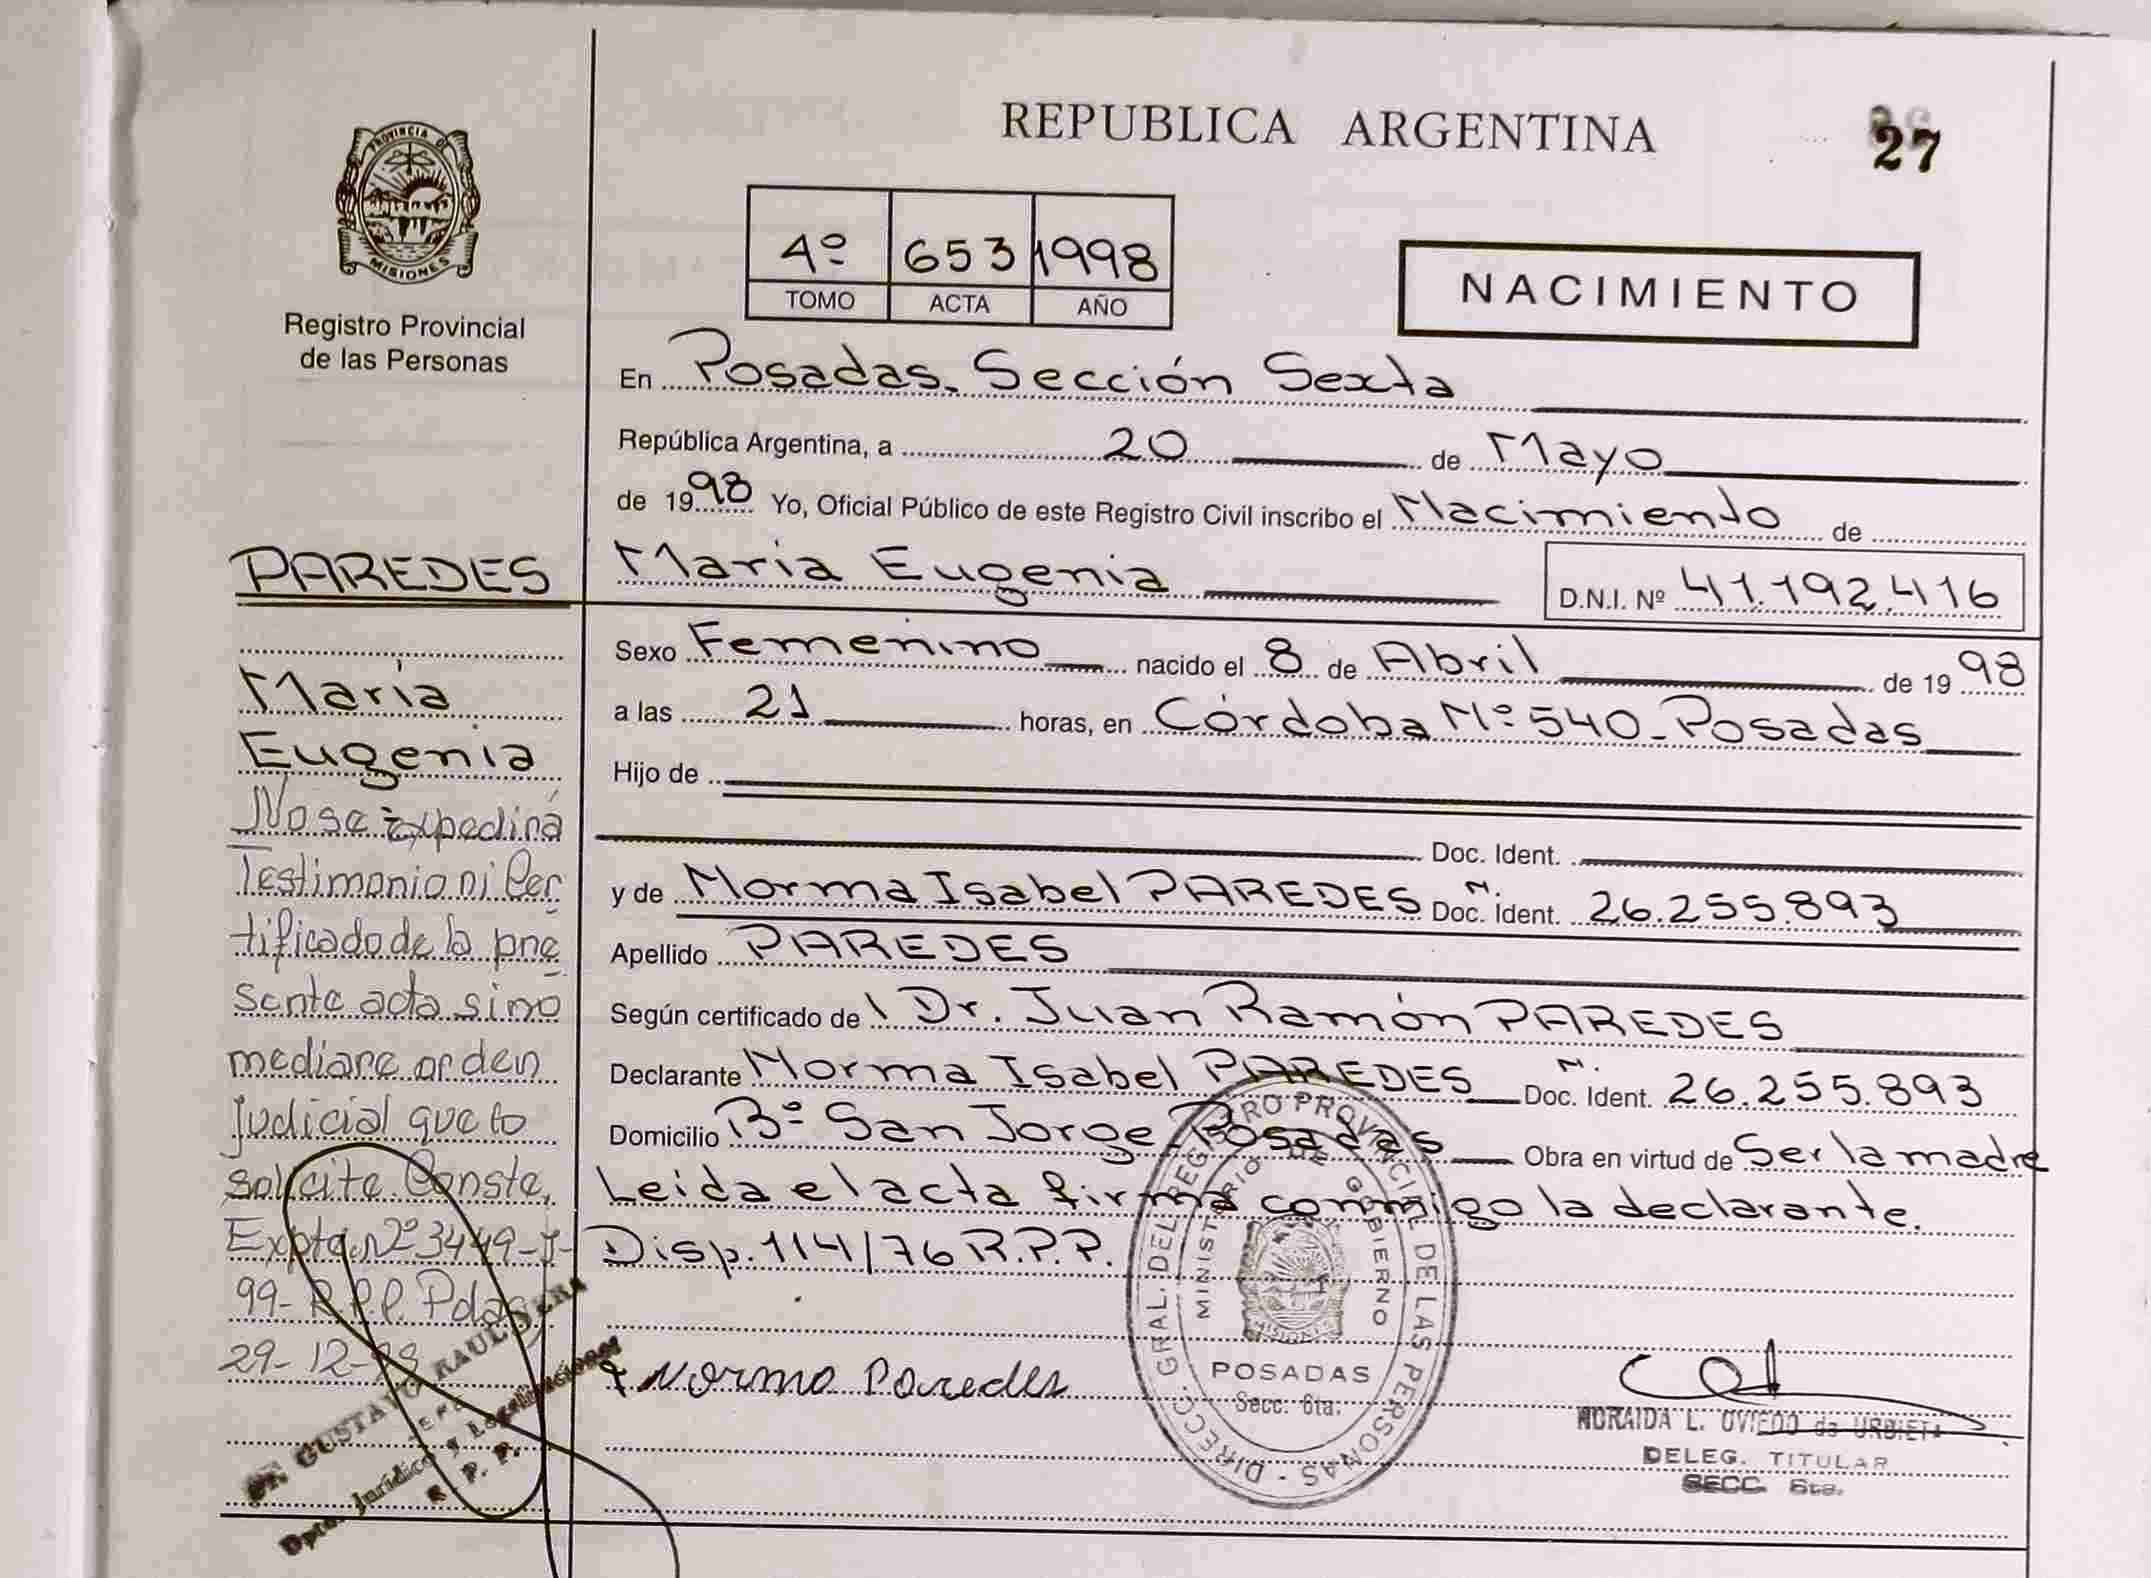 REPUBLICA ARGENTINA
27
PROVINCIA DE
MISIONES
Registro Provincial
de las Personas
4º 653 1998
TOMO ACTA AÑO
NACIMIENTO
En Posadas. Sección Sexta
República Argentina, a 20 de Mayo
de 1998 Yo, Oficial Público de este Registro Civil inscribo el Nacimiento de
María Eugenia D.N.I. Nº 41.192.416
Sexo Femenino nacido el 8 de Abril de 1998
a las 21 horas, en Córdoba Nº 540 - Posadas
Hijo de
Doc. Ident.
y de Norma Isabel PAREDES Doc. Ident. N. 26.255.893
Apellido PAREDES
Según certificado de Dr. Juan Ramón PAREDES
Declarante Norma Isabel PAREDES Doc. Ident. N. 26.255.893
Domicilio Bº San Jorge Posadas Obra en virtud de Ser la madre
Leida el acta firma conmigo la declarante.
Disp. 114/76 R.P.P.
Norma Paredes
PAREDES
María
Eugenia
No se Expedirá
Testimonio ni Cer
tificado de la pre
sente acta sino
mediane orden
Judicial que lo
solicite. Conste.
Expte. Nº 3449-
99- R.P.P. Pdas
29-12-
GUSTAVO RAUL VERA
Dpto. Jurídico y Legalizaciones
R. P. P.
DIRECC. GRAL. DEL REGISTRO PROVINCIAL DE LAS PERSONAS
MINISTERIO DE GOBIERNO
MISIONES
POSADAS
Secc. 6ta.
NORAIDA L. OVIEDO de URBIETA
DELEG. TITULAR
SECC. 6ta.